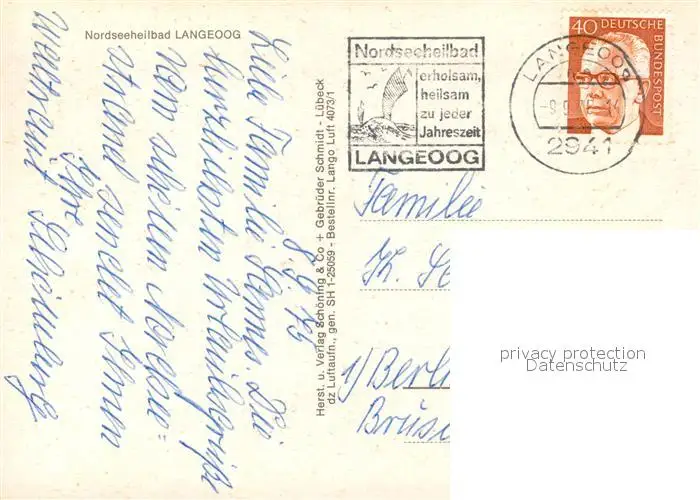 Nordseeheilbad LANGEOOG
8.9.73
Liebe Familie
herzlichsten Urlaubsgrüße
vom schönen Nordsee=
strand sendet Ihnen
Ihre
Herst. u. Verlag Schöning & Co + Gebrüder Schmidt - Lübeck
dz Luftaufn., gen. SH 1-25059 - Bestellnr. Lango Luft 4073/1
Nordseeheilbad
erholsam,
heilsam
zu jeder
Jahreszeit
LANGEOOG
LANGEOOG
2941
40 DEUTSCHE BUNDESPOST
Familie
K. Se
1/Berli
Brüss
privacy protection
Datenschutz